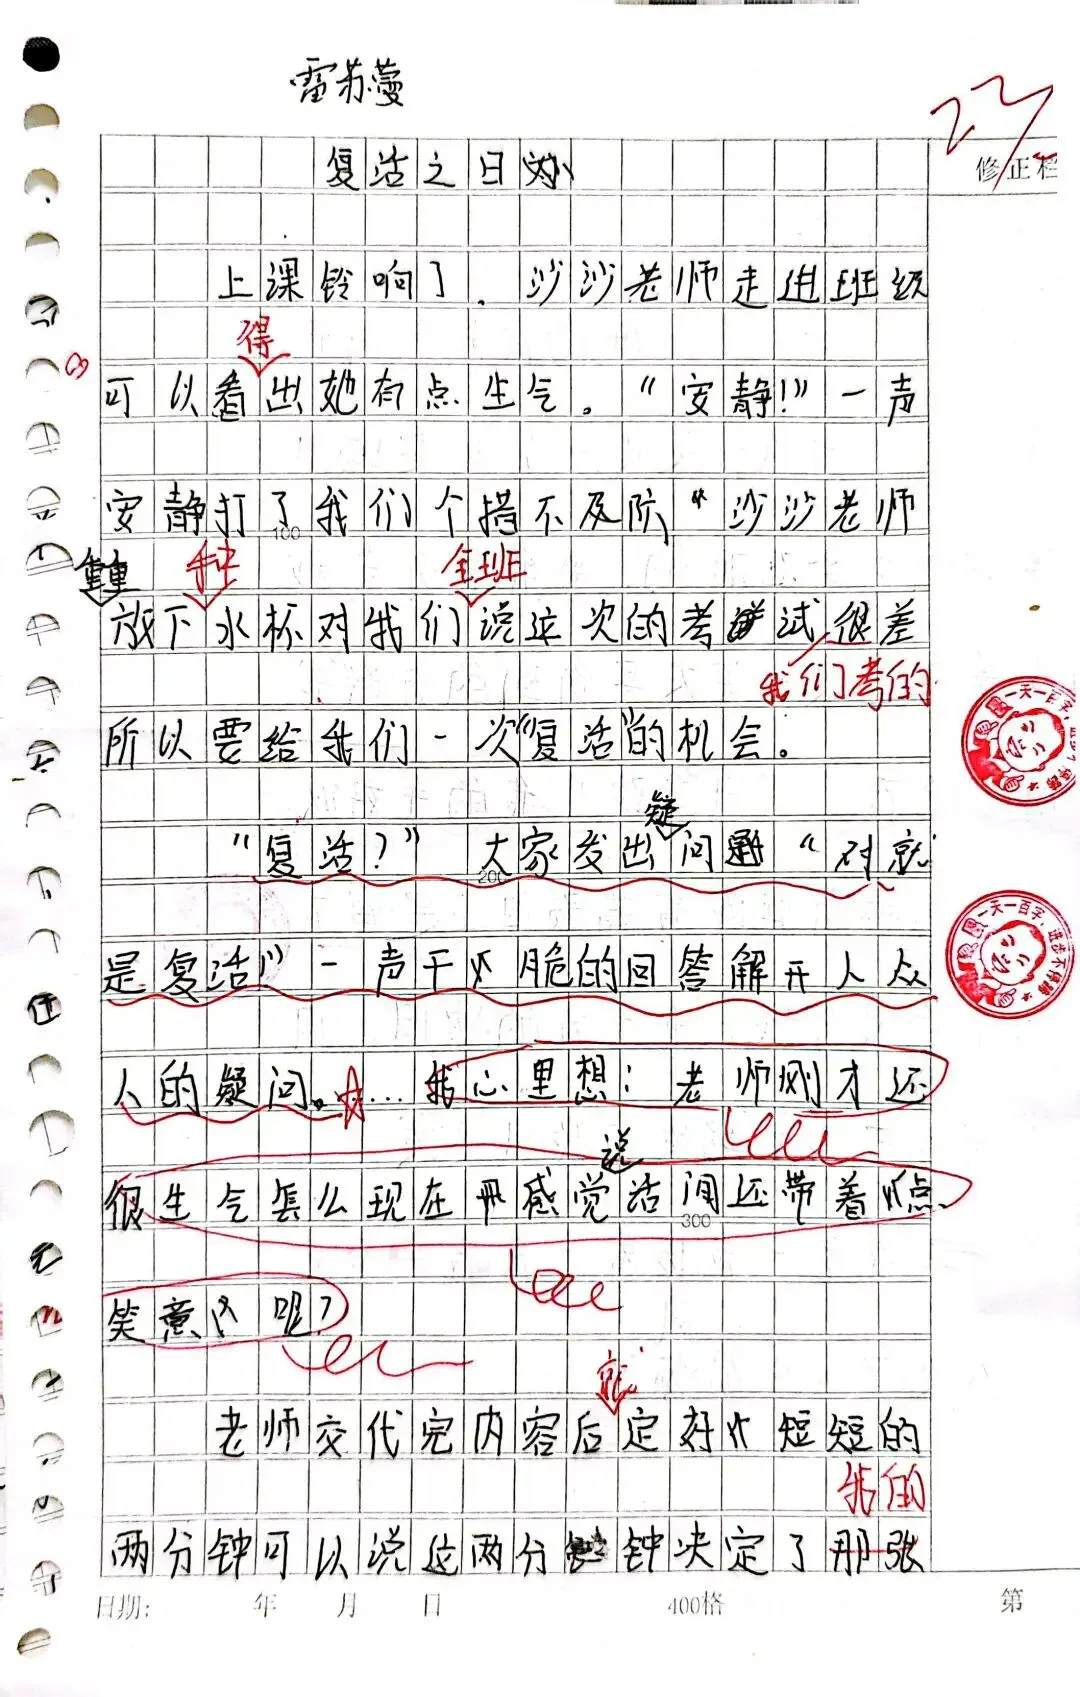 雷苏蔓
23
修正栏
复活之日
上课铃响了，沙沙老师走进班级
得
可以看出她有点生气。“安静！”一声
安静打了我们个措不及防“沙沙老师
100
重重 种 全班
放下水杯对我们说这次的考试很差
我们考的
所以要给我们一次“复活”的机会。
疑
“复活？”大家发出问 “对就
200
是复活”一声干脆的回答解开人众
人的疑问。…我心里想：老师刚才还
说
很生气怎么现在感觉话间还带着点
300
笑意呢？
就
老师交代完内容后定好短短的
我的
两分钟可以说这两分钟决定了那张
日期： 年 月 日 400格 第
一天一百字，进步不得了
一天一百字，进步不得了